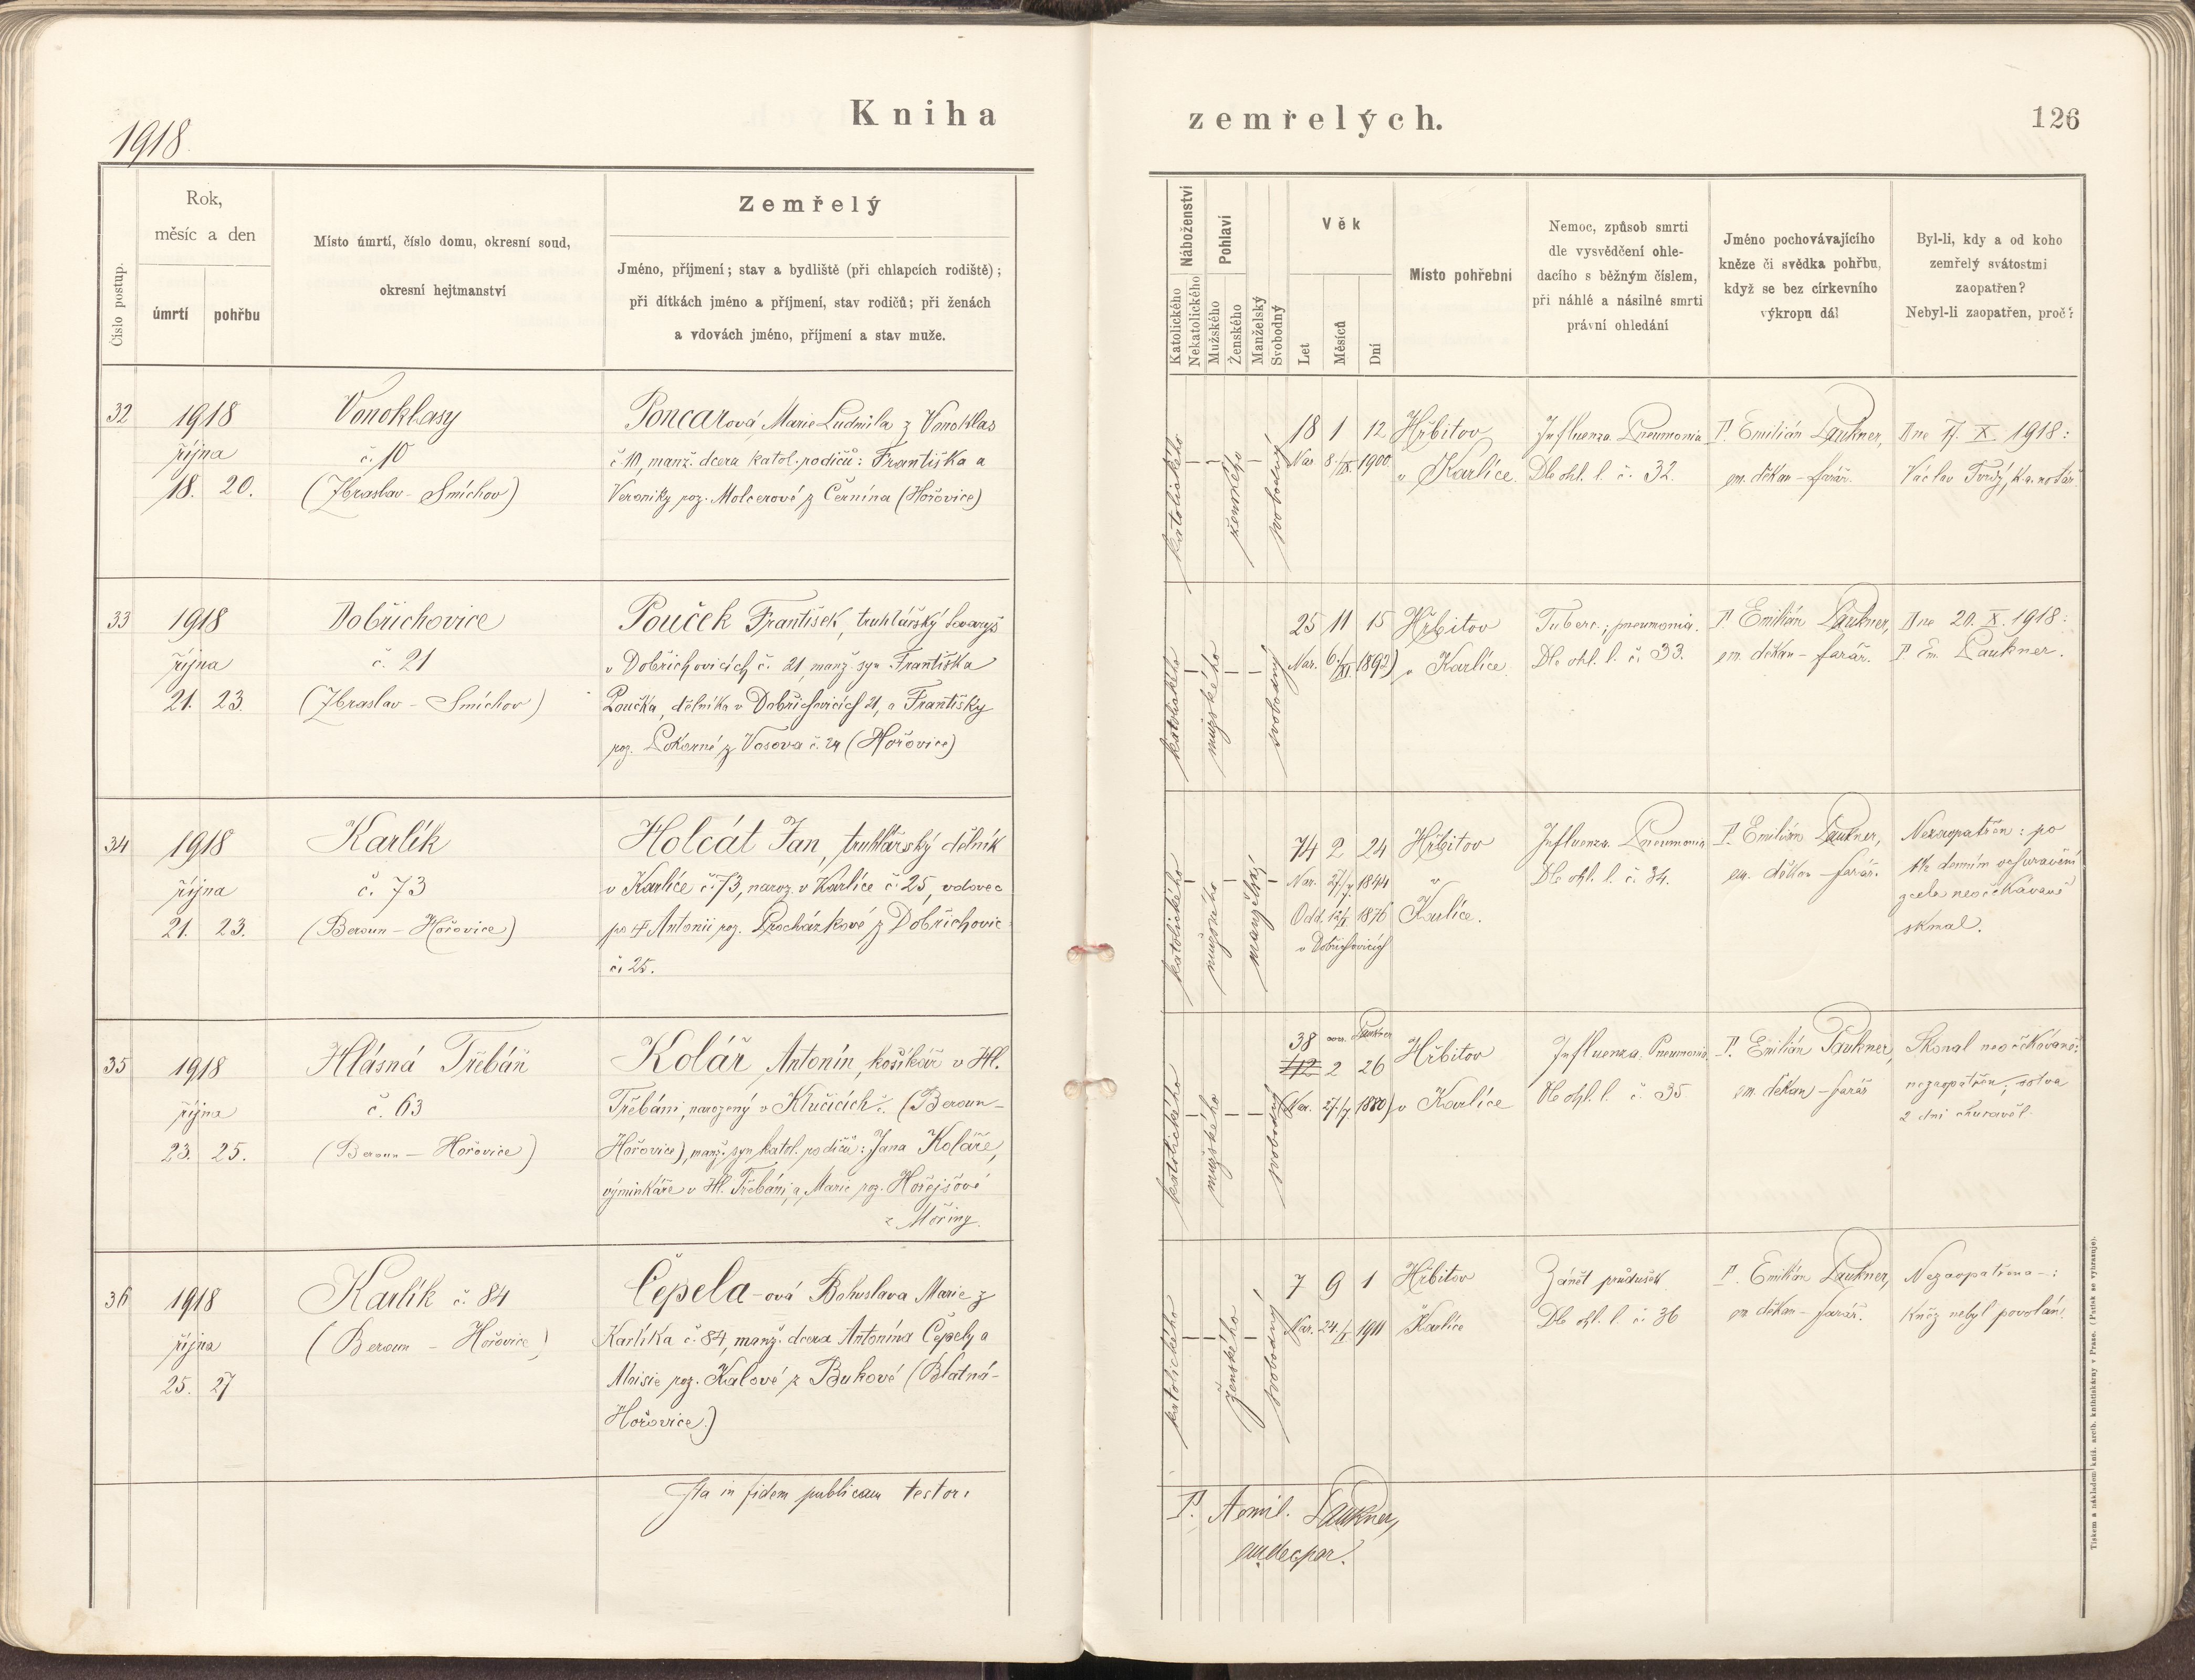 Kniha
zemřelých.
126
1918.
Číslo postup.
Rok,
měsíc a den
úmrtí
pohřbu
Místo úmrtí, číslo domu, okresní soud,
okresní hejtmanství
Zemřelý
Jméno, příjmení; stav a bydliště (při chlapcích rodiště);
při dítkách jméno a příjmení, stav rodičů; při ženách
a vdovách jméno, příjmení a stav muže.
Náboženství
Katolického
Nekatolického
Pohlaví
Mužského
Ženského
Manželský
Svobodný
Věk
Let
Měsíců
Dní
Místo pohřební
Nemoc, způsob smrti
dle vysvědčení ohle-
dacího s běžným číslem,
při náhlé a násilné smrti
právní ohledání
Jméno pochovávajícího
kněze či svědka pohřbu,
když se bez církevního
výkropu dál
Byl-li, kdy a od koho
zemřelý svátostmi
zaopatřen?
Nebyl-li zaopatřen, proč?
32
1918
října
18. 20.
Vonoklasy
č. 10
(Zbraslav - Smíchov)
Poncarová, Marie Ludmila z Vonoklas
č 10, manž. dcera katol. rodičů: Františka a
Veroniky roz. Molcerové z Černína (Hořovice)
katolického
—
—
ženského
—
svobodný
18 1 12
Nar. 8./IX. 1900
Hřbitov
v Karlíce.
Influenza. Pneumonia
Dle ohl. l. č. 32.
P. Emilián Paukner,
em. děkan - farář.
Dne 17. X. 1918:
Václav Tvrdý, k. a. notář.
33
1918
října
21. 23.
Dobřichovice
č. 21
(Zbraslav - Smíchov)
Pouček František, truhlářský tovaryš
v Dobřichovicích č. 21, manž. syn Františka
Poučka, dělníka v Dobřichovicích 21, a Františky
roz. Pokorné z Vosova č. 24 (Hořovice)
katolického
—
mužského
—
—
svobodný
25 11 15
Nar. 6./XI. 1892)
Hřbitov
v Karlíce.
Tuberc.; pneumonia.
Dle ohl. l. č. 33.
P. Emilián Paukner,
em. děkan - farář.
Dne 20. X. 1918:
P. Em. Paukner.
34
1918
října
21. 23.
Karlík
č. 73
(Beroun - Hořovice)
Holcát Jan, truhlářský dělník
v Karlíce č. 73, naroz. v Karlíce č. 25, vdovec
po † Antonii roz. Procházkové z Dobřichovic
č. 25.
katolického
—
mužského
—
manželský
—
74 2 24
Nar. 27./7. 1844
Odd. 1876
v Dobřichovicích
Hřbitov
v
Karlíce.
Influenza. Pneumonia
Dle ohl. l. č. 34.
P. Emilián Paukner,
em. děkan - farář.
Nezaopatřen: po
denním ochuravění
zcela neočekávaně
skonal.
35
1918
října
23. 25.
Hlásná Třebáň
č. 63
(Beroun - Hořovice)
Kolář Antonín, košíkář v Hl.
Třebáni, narozený v Klučicích č. (Beroun -
Hořovice), manž. syn katol. rodičů: Jana Koláře,
výminkáře v Hl. Třebáni, a Marie roz. Hořejšové
z Mořiny.
katolického
—
mužského
—
—
svobodný
38 corr. Paukner
2 26
Nar. 27./7. 1880)
Hřbitov
v Karlíce
Influenza. Pneumonia
Dle ohl. l. č. 35
P. Emilián Paukner,
em. děkan - farář
Skonal neočekávaně:
nezaopatřen; sotva
2 dni churavěl.
36
1918
října
25. 27
Karlík č. 84
(Beroun - Hořovice)
Čepela-ová Bohuslava Marie z
Karlíka č. 84, manž. dcera Antonína Čepely a
Aloisie roz. Kalové z Bukové (Blatná -
Hořovice.)
katolického
—
—
ženského
—
svobodný
7 9 1
Nar. 24./I 1911
Hřbitov
Karlíce
Zánět průdušek
Dle ohl. l. č. 36
P. Emilián Paukner,
em. děkan - farář.
Nezaopatřena -:
Kněz nebyl povolán!
Ita in fidem publicam testor:
P. Aemil. Paukner,
em. dec. par.
Tiskem a nákladem kníž. arcib. knihtiskárny v Praze. (Patisk se vyhrazuje).